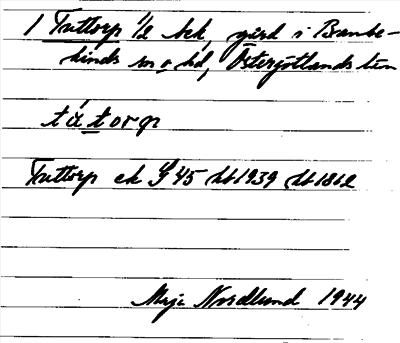 1 Truttorp 1/2 bef, gård i Banke-
kinds sn o hd, Östergötlands län
tŭtorp
Truttorp ek S 45 Jb 1939 Jb 1812
Maja Nordlund 1944